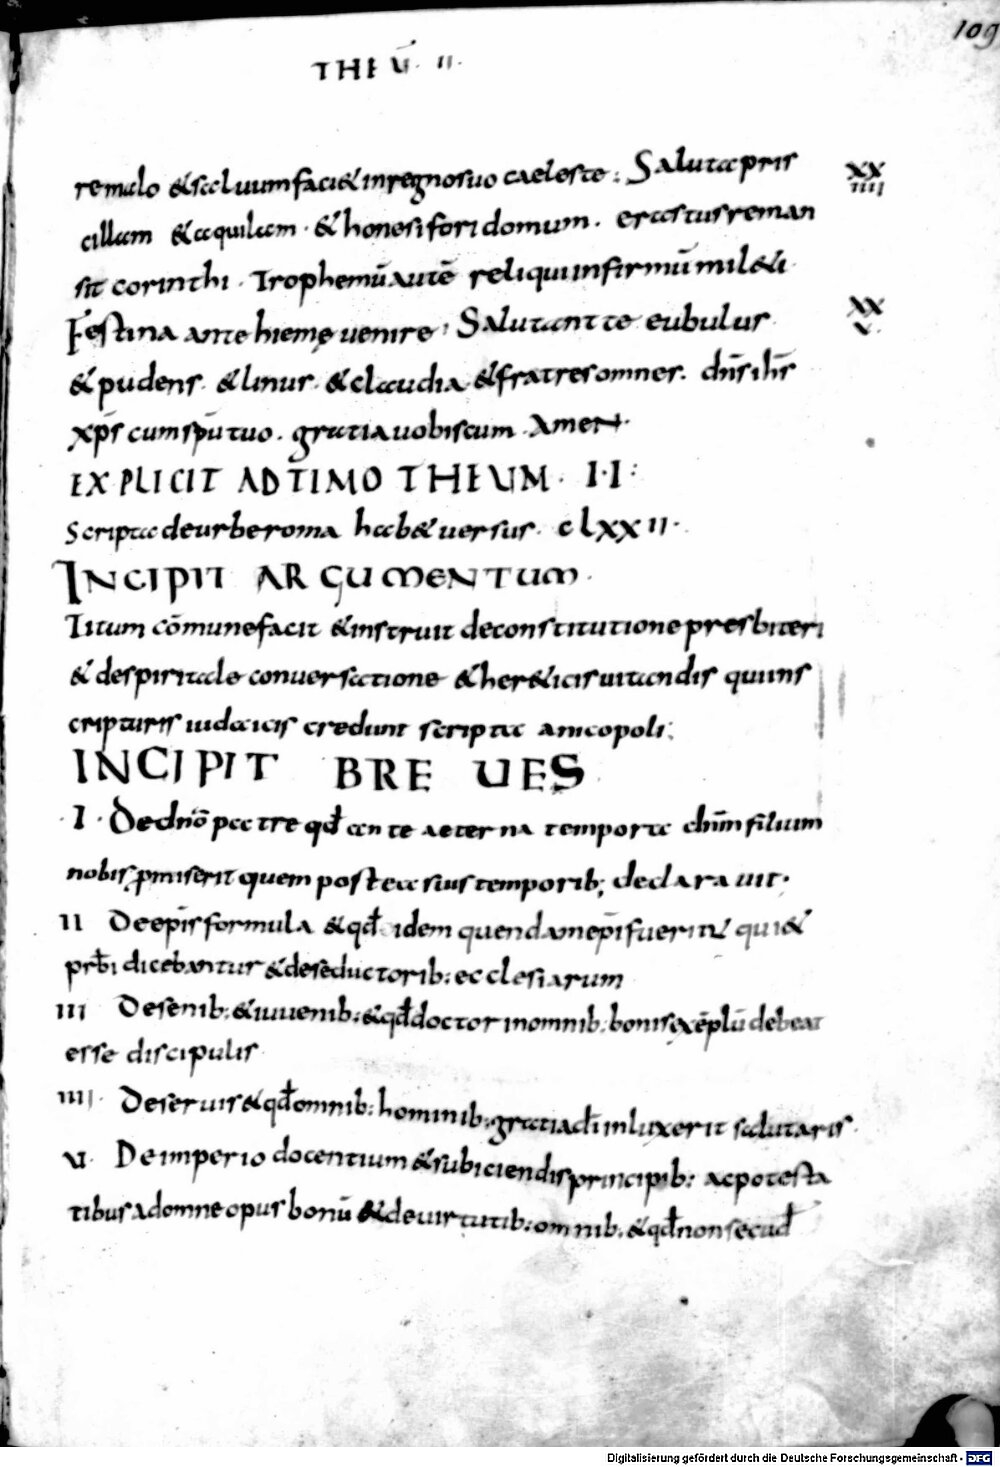 109
THEŪ · II ·
re malo & saluum faci& in regno suo caeleste : Saluta pris
XX
IIII
cillam & aquilam · & honesifori domum · erastus reman
sit corinthi · Trophemū autē reliqui infirmū mil&i ·
Festina ante hiemę uenire · Salutant te eubulus
XX
V
& pudens · & linus · & claudia & fratres omnes · dn̄s ih̄s
xp̄s cum spū tuo · gratia uobiscum · Amen ·
EXPLICIT AD TIMOTHEUM · I·I :
Scripta de urbe roma hab& uersus · clxxii ·
INCIPIT ARGUMENTUM ·
Titum cōmune facit & instruit de constitutione presbiteri
& de spiritale conuersatione & her&icis uitandis qui in s
cripturis iudaicis credunt scripta a nicopoli ;
INCIPIT BREUES
· I · De dn̄o patre qd̄ ante aeterna tempora chm̄ filium
nobis promiserit quem postea suis temporib; declarauit ·
II De epīs formula & qd̄ idem quendam epī fuerint qui &
prb̄i dicebantur & de seductorib : ecclesiarum
III De senib : & iuuenib : & qd̄ doctor in omnib : bonis exēplū debeat
esse discipulis
IIII · De seruis & qd̄ omnib : hominib : gratia dī inluxerit salutaris ·
V · De imperio docentium & subiciendis principib : ac potesta
tibus ad omne opus bonū & de uirtutib : omnib : & qd̄ non secud̄
Digitalisierung gefördert durch die Deutsche Forschungsgemeinschaft - DFG